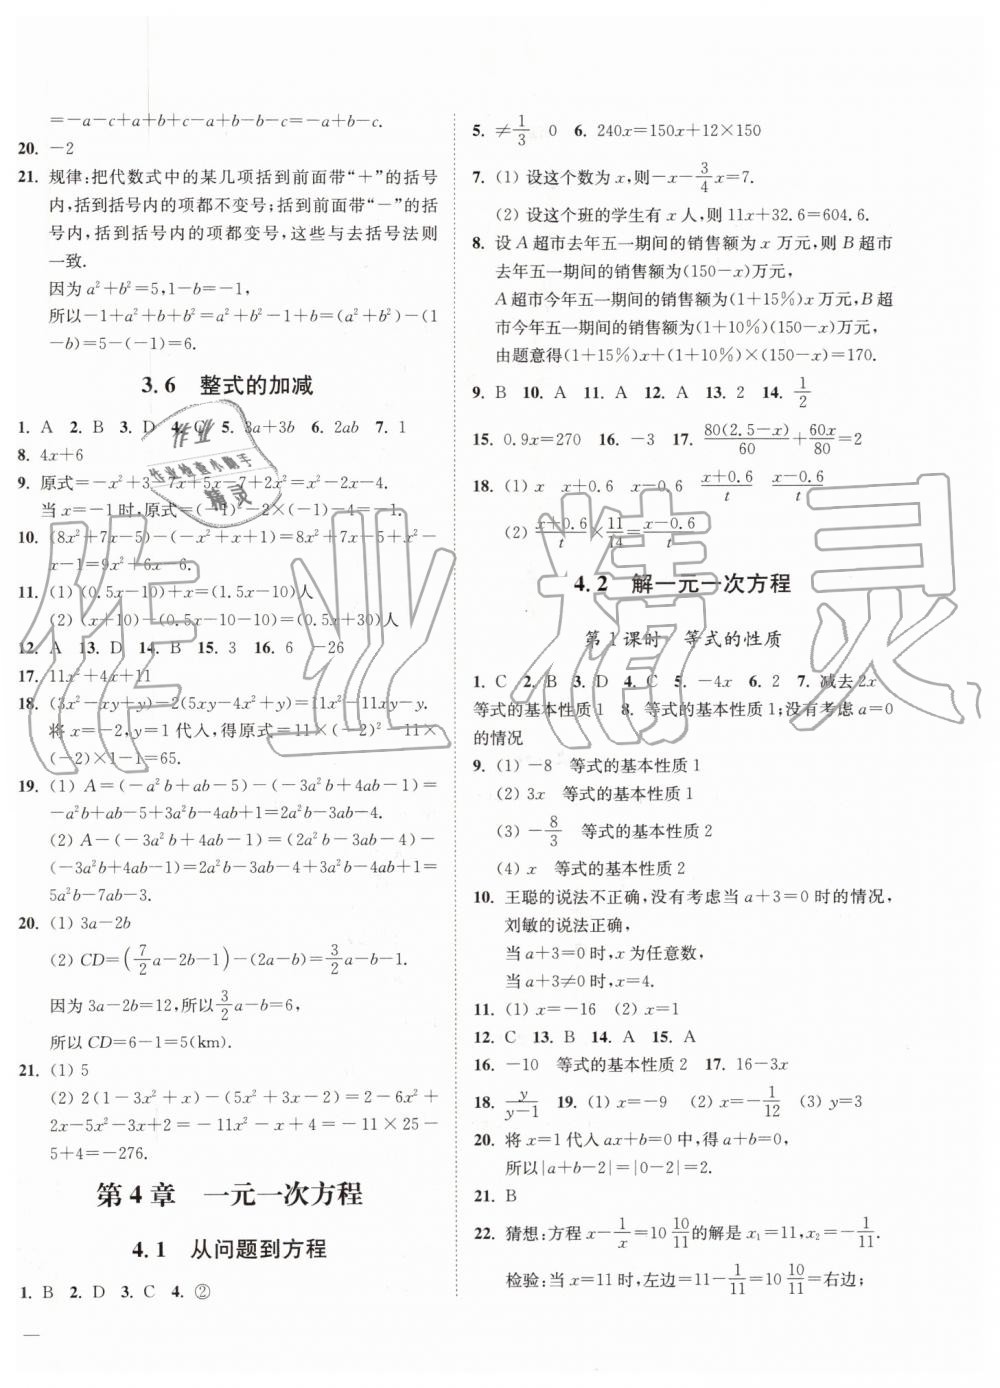 =-a-c+a+b+c-a+b-b-c=-a+b-c.
20. -2
21. 规律:把代数式中的某几项括到前面带“+”的括号
内,括到括号内的项都不变号;括到前面带“-”的括
号内,括到括号内的项都变号,这些与去括号法则
一致.
因为a²+b²=5,1-b=-1,
所以-1+a²+b+b²=a²+b²-1+b=(a²+b²)-(1
-b)=5-(-1)=6.
3.6 整式的加减
1. A 2. B 3. D 4. C 5. 3a+3b 6. 2ab 7. 1
8. 4x+6
9. 原式=-x²+3-7x+5x-7+2x²=x²-2x-4.
当x=-1时,原式=(-1)²-2×(-1)-4=-1.
10. (8x²+7x-5)-(-x²+x+1)=8x²+7x-5+x²
-x-1=9x²+6x-6.
11. (1) (0.5x-10)+x=(1.5x-10)人
(2) (x+10)-(0.5x-10-10)=(0.5x+30)人
12. A 13. D 14. B 15. 3 16. 6 -26
17. 11x²+4x+11
18. (3x²-xy+y)=2(5xy-4x²+y)=11x²-11xy-y.
将x=-2,y=1代人,得原式=11×(-2)²-11×
(-2)×1-1=65.
19. (1) A=(-a²b+ab-5)-(-3a²b+4ab-1)=
-a²b+ab-5+3a²b-4ab+1=2a²b-3ab-4.
(2) A-(-3a²b+4ab-1)=(2a²b-3ab-4)-
(-3a²b+4ab-1)=2a²b-3ab-4+3a²b-4ab+1=
5a²b-7ab-3.
20. (1) 3a-2b
(2) CD=(7/2a-2b-1)-(2a-b)=3/2a-b-1.
因为3a-2b=12,所以3/2a-b=6,
所以CD=6-1=5(km).
21. (1) 5
(2) 2(1-3x²+x)-(5x²+3x-2)=2-6x²+
2x-5x²-3x+2=-11x²-x+4=-11×25-
5+4=-276.
第4章 一元一次方程
4.1 从问题到方程
1. B 2. D 3. C 4. ②
5. ≠1/3 0 6. 240x=150x+12×150
7. (1) 设这个数为x,则-x-3/4x=7.
(2) 设这个班的学生有x人,则11x+32.6=604.6.
8. 设A超市去年五一期间的销售额为x万元,则B超市
去年五一期间的销售额为(150-x)万元,
A超市今年五一期间的销售额为(1+15%)x万元,B超
市今年五一期间的销售额为(1+10%)(150-x)万元,
由题意得(1+15%)x+(1+10%)×(150-x)=170.
9. B 10. A 11. A 12. A 13. 2 14. 1/2
15. 0.9x=270 16. -3 17. 80(2.5-x)/60+60x/80=2
18. (1) x x+0.6 x-0.6 (x+0.6)/t (x-0.6)/t
(2) (x+0.6)/t×11/14=(x-0.6)/t
4.2 解一元一次方程
第1课时 等式的性质
1. C 2. B 3. D 4. C 5. -4x 6. 2 7. 减去2x
等式的基本性质1 8. 等式的基本性质1;没有考虑a=0
的情况
9. (1) -8 等式的基本性质1
(2) 3x 等式的基本性质1
(3) -8/3 等式的基本性质2
(4) x 等式的基本性质2
10. 王聪的说法不正确,没有考虑当a+3=0时的情况,
刘敏的说法正确,
当a+3=0时,x为任意数,
当a+3≠0时,x=4.
11. (1) x=-16 (2) x=1
12. C 13. B 14. A 15. A
16. -10 等式的基本性质2 17. 16-3x
18. y/(y-1) 19. (1) x=-9 (2) x=-1/12 (3) y=3
20. 将x=1代人ax+b=0中,得a+b=0,
所以|a+b-2|=|0-2|=2.
21. B
22. 猜想:方程x-1/x=10 10/11的解是x₁=11,x₂=-1/11.
检验:当x=11时,左边=11-1/11=10 10/11=右边;
作业
作业检查小助手
精灵
作业精灵